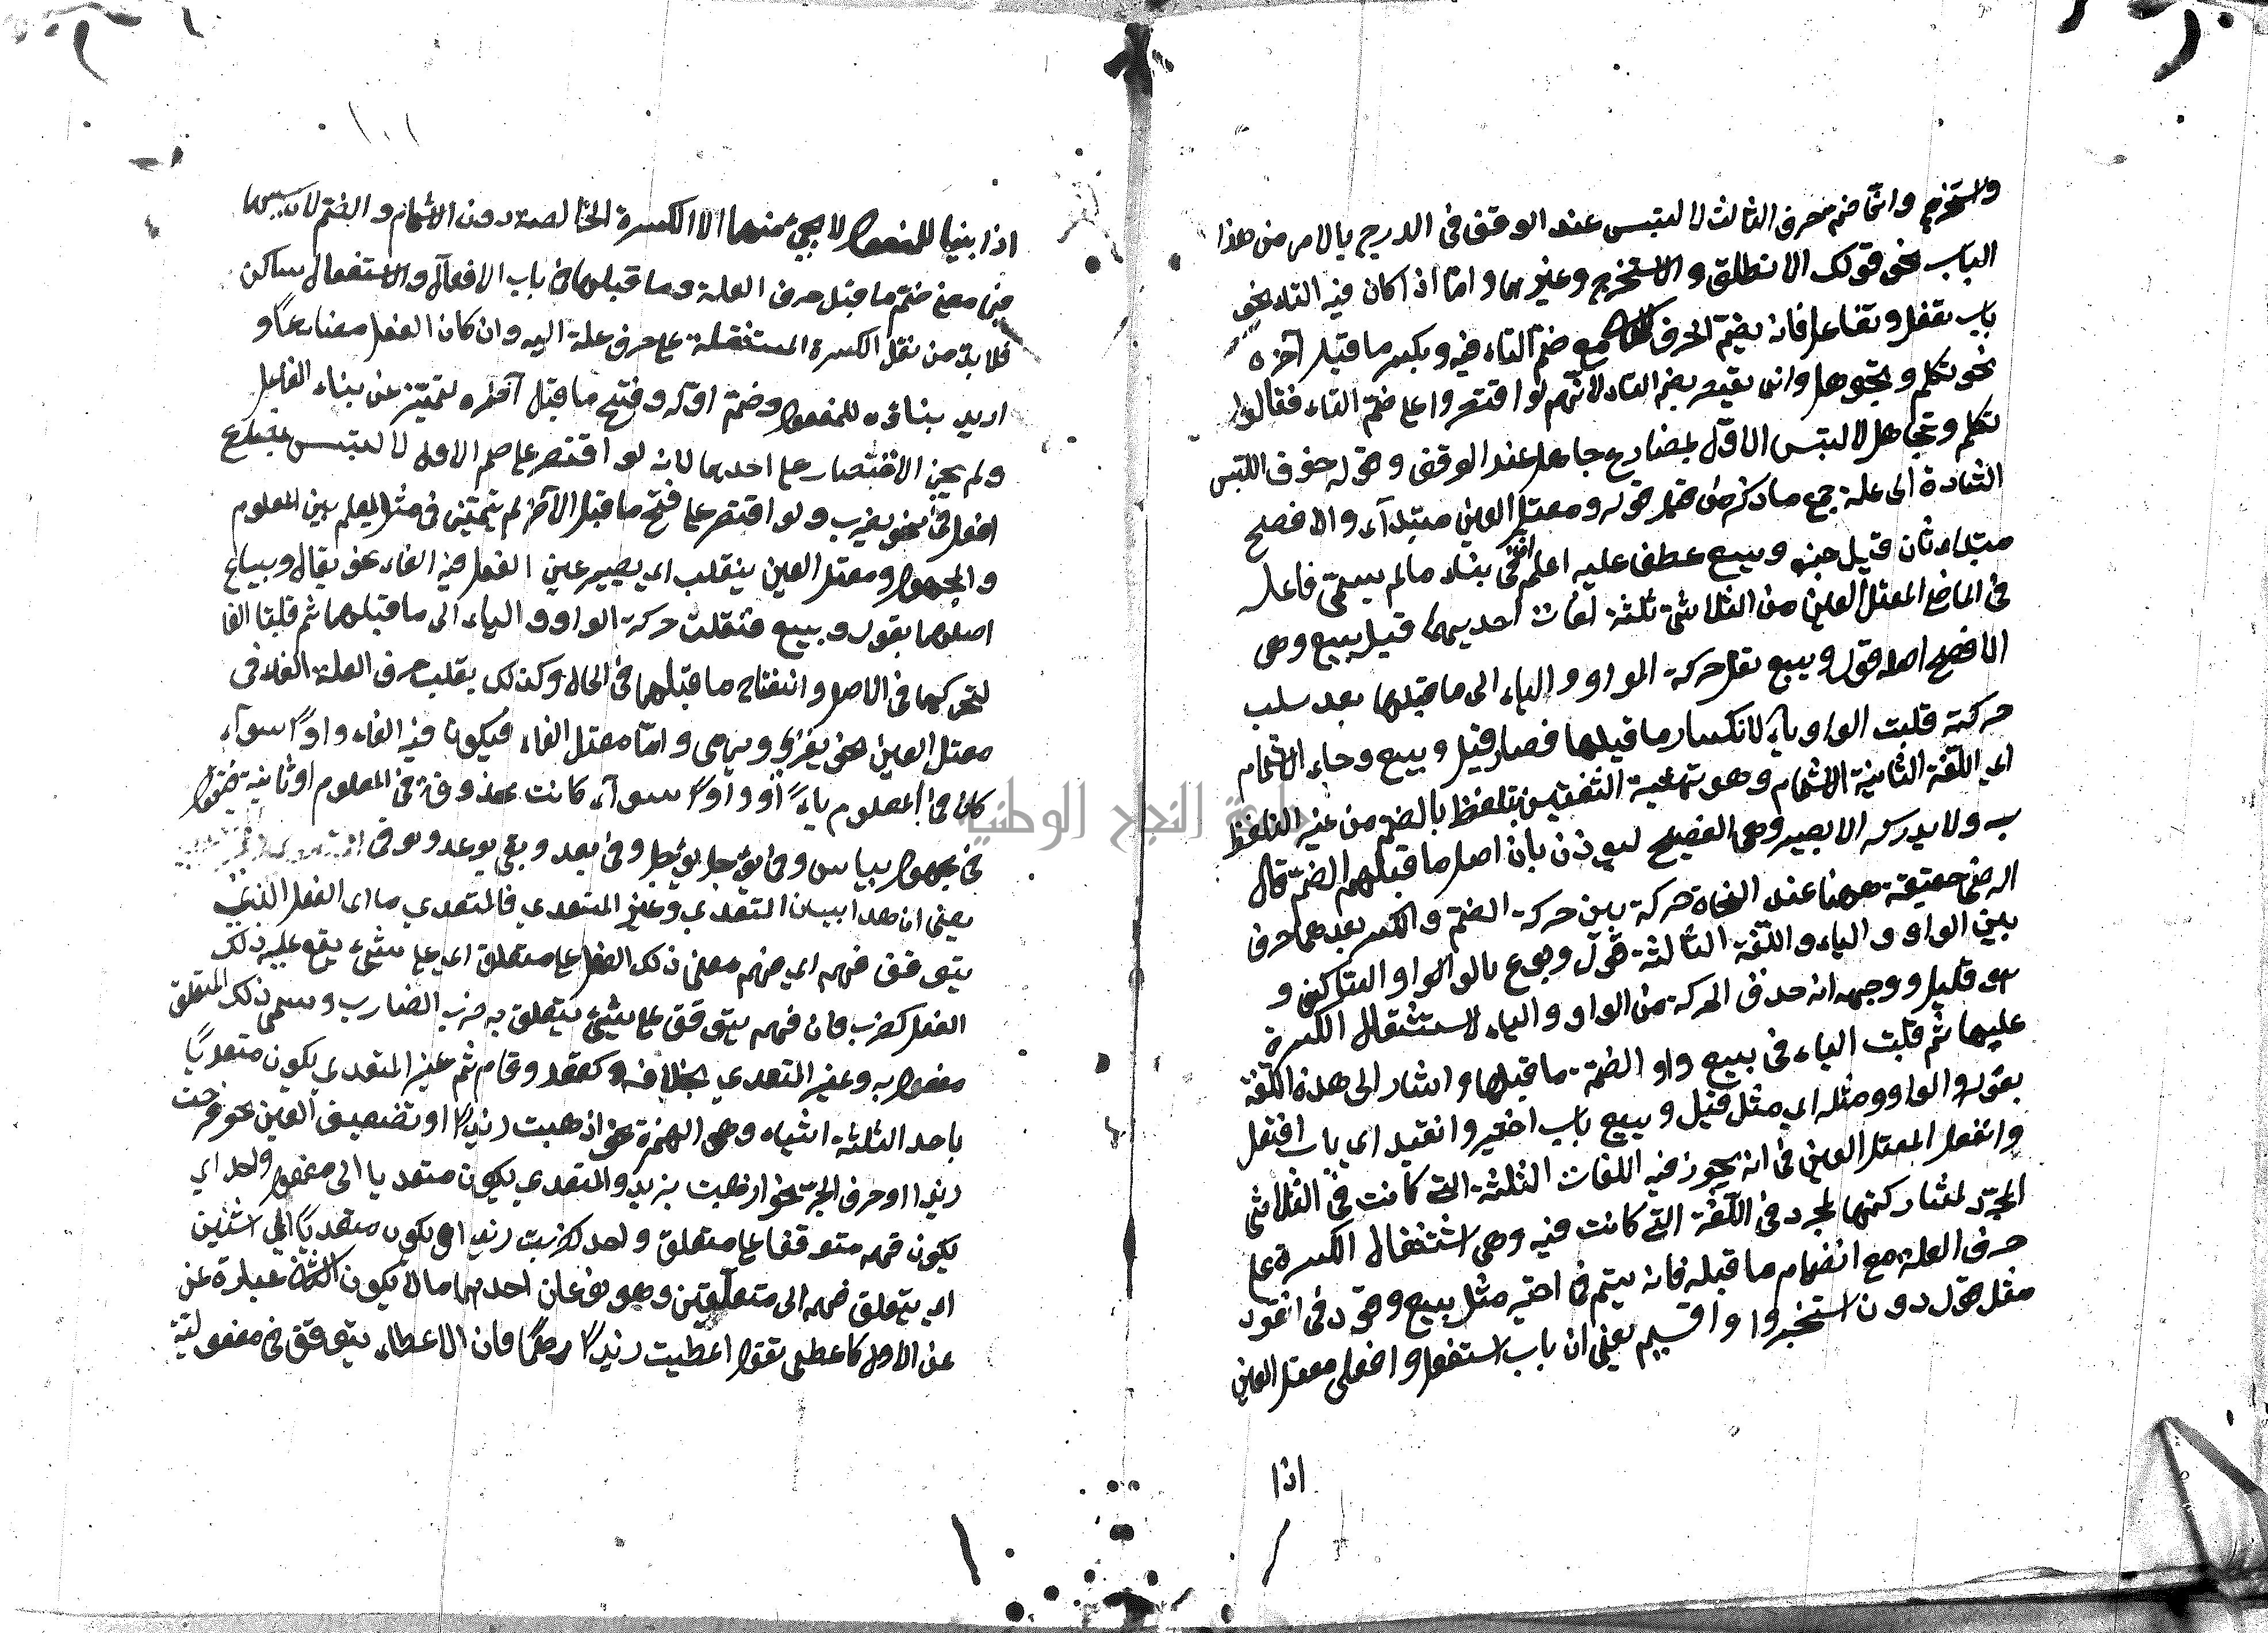 واستخرج وانما ضم حرف الثالث لا لتبس عند الوقف في الدرج بالامر من هذا
الباب نحو قولك الا نطلق والا ستخرج وغيرهما واما اذا كان فيه التاء نحو
باب تفعل وتفاعل فانه يضم الحرف مع ضم التاء فيه وبكسر ما قبل آخره
نحو تكلم وتجوهل وانما يقيد بضم الفاء لانهم لو اقتصروا على ضم التاء فقالوا
تكلم وتجاهل لا لتبس الاول بمضارع جاهل عند الوقف وقوله خوف اللبس
اشارة الى علة جمع ما ذكر من قبل قوله ومعتل العين مبتدآء والافصح
مبتداء ثان قيل خبره وبيع عطف عليه اعلم ان في بناء ما لم يسم فاعله
في الماضي المعتل العين من الثلاثي ثلثة لغات احديهما قيل بيع وهى
الافصح اصله قول وبيع نقل حركة الواو والياء الى ما قبلها بعد سلب
حركته قلبت الواو ياء لانكسار ما قبلها فصار قيل وبيع وجاء الاشمام
اى اللغة الثانية الاشمام وهو تهيئة الشفتين بتلفظ بالضم من غير التلفظ
ب ولا يدركه الا بصير وهى الفصيح ليوذن بان اصل ما قبلهم الضم قال
الرضى حقيقة ههنا عند النحاة حركة بين حركة الضم والكسر بعدهما حرف
بين الواو والياء واللغة الثالثة قول وبوع بالواو الساكن و
هو قليل ووجهه انه حذف الحركة من الواو والياء لاستثقال الكسرة
عليهما ثم قلبت الياء في بيع واو الضمة ما قبلها واشار الى هذه اللغة
بقوله والواو ومثله اى مثل قيل وبيع باب اختير وانقيد اى باب افتعل
وانفعل المعتل العين في انه يجوز فيه اللغات الثلثة التي كانت في الثلاثي
المجرد لمشاركتهما لمجرد في اللغة التي كانت فيه وهى استثقال الكسرة على
حرف العلة مع انضمام ما قبله فان يتم في اختير مثل بيع وقود في انقود
مثل قول دون استخير واقيم يعني ان باب استفعل وافعل معتل العين
اذا
اذا بنيا للمفعول لا يجيء منهما الا الكسرة الخالصة دون الاشمام والضم لان سببهما
فيها معنى ضم ما قبل حرف العلة وما قبلها في باب الافعال والاستفعال ساكن
فلا بد من نقل الكسرة المستثقلة على حرف علة اليه وان كان الفعل مضارعًا و
اريد بناؤه للمفعول وضم اوله وفتح ما قبل آخره لتميز عن بناء الفاعل
ولم يجز الاقتصار على احدهما لانه لو اقتصر على ضم الاول لا لتبس
افعل في نحو يضرب ولو اقتصر على فتح ما قبل الآخر لم يتميز في مثل يعلم بين المعلوم
والمجهول ومعتل العين ينقلب اى يصير عين الفعل فيه الفاء نحو يقال ويباع
اصلهما يقول ويبيع فنقلت حركة الواو والياء الى ما قبلهما ثم قلبتا الفا
لتحركهما في الاصل وانفتاح ما قبلهما في الحال وكذلك يقلب حرف العلة الفاء في
معتل العين نحو يغزى ويرمى واما معتل الفاء فيكون فيه الفاء واوًا سوآء
كان في المعلوم ياءً او واوًا سوآء كانت محذوفة في المعلوم او ثابتة
في مجهول يياس وفي يوجل يوجل وفي يعد ويقي يوعد ويوقى
يعني ان هذا بيان المتعدى وغير المتعدي فالمتعدي ما اى الفعل الذى
يتوقف فهمه اى فهم معنى ذلك الفعل على متعلق اى على شيء يقع عليه ذلك
الفعل كضرب فان فهمه يتوقف على شيء يتعلق به ضرب الضارب ويسمى ذلك المتعلق
مفعول به وغير المتعدي بخلافه وكقعد وقام ثم غير المتعدي يكون متعديًا
باحد الثلثة اشياء وهى الهمزة نحو اذهبت زيدًا او تضعيف العين نحو فرحت
زيدا او حرف الجر نحو ذهبت بزيد والمتعدى يكون متعديا الى مفعول واحد اى
يكون فهمه متوقفا على متعلق واحد كضربت زيدا او يكون متعديًا الى اثنين
اى يتعلق فهمه الى متعلقين وهو نوعان احدهما ما لا يكون الثاني عبارة عن
عن الاول كاعطى تقول اعطيت زيدًا درهمًا فان الاعطاء يتوقف في مفعوليته
جامعة النجاح الوطنية